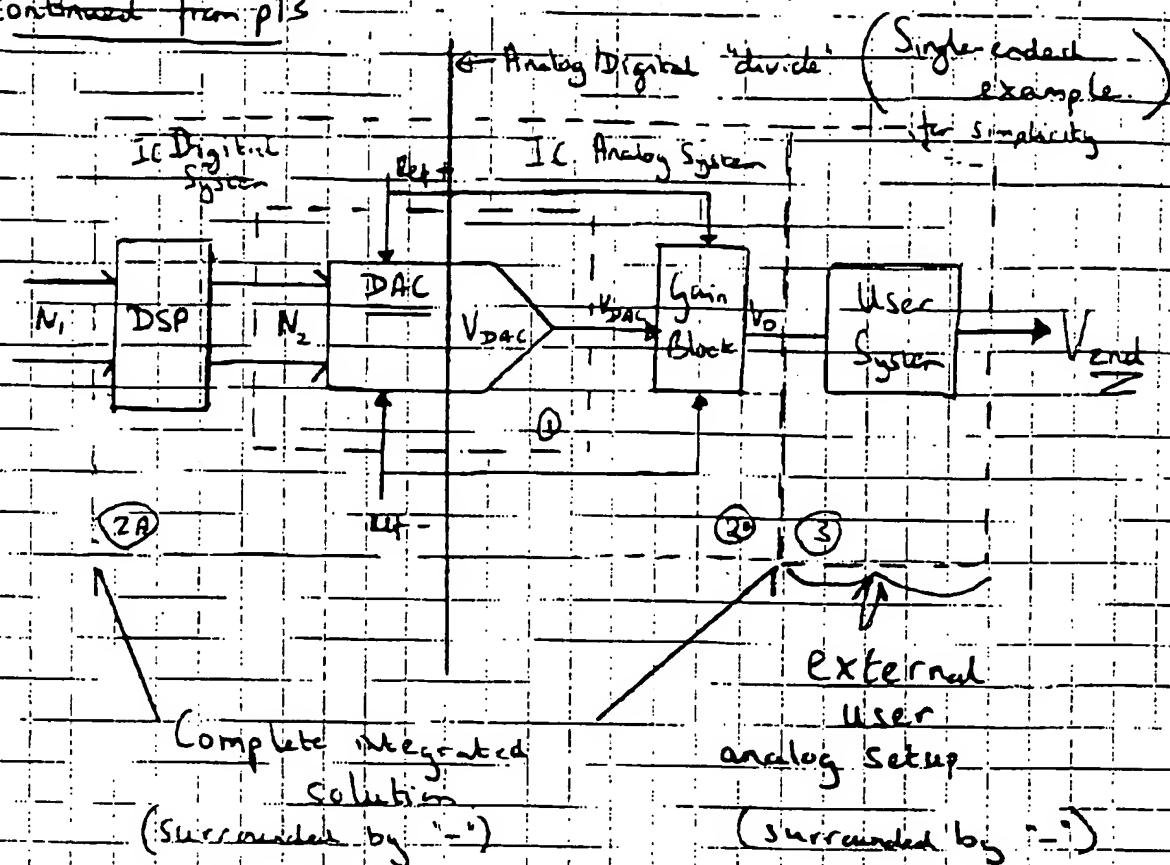 Continued from p15
← Analog/Digital "divide"
(Single-ended
example
for simplicity)
IC Digital
System
Ref+
IC Analog System
N1
DSP
N2
DAC
VDAC
VDAC
Gain
Block
VO
User
System
V2nd
①
Ref-
2A
③
Complete integrated
solution
(surrounded by "-")
external
user
analog setup
(surrounded by "-")